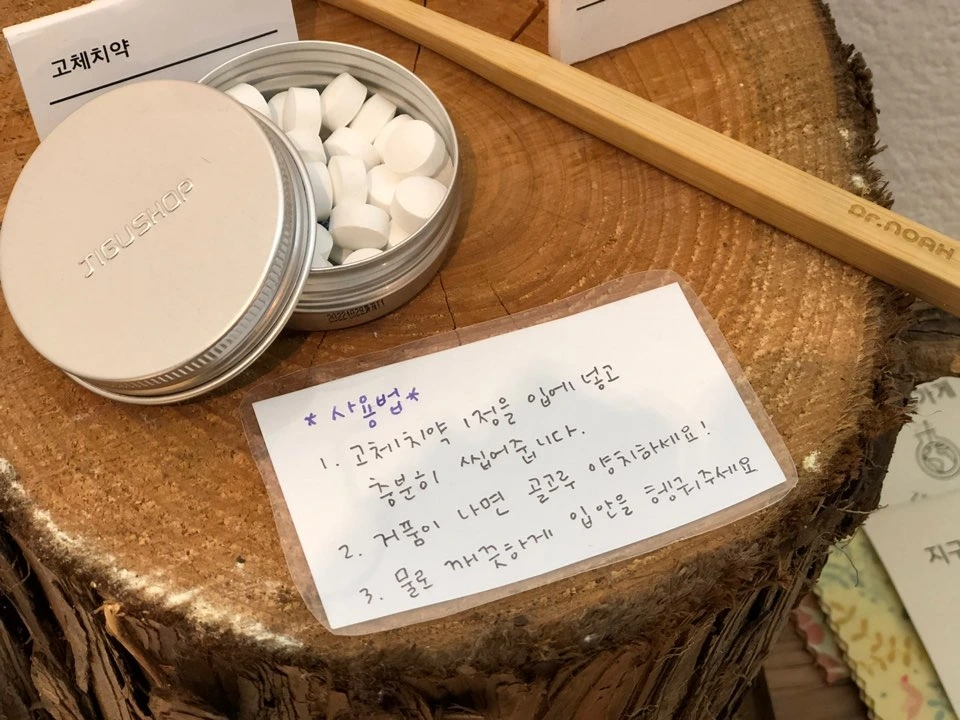 고체치약
JIGUSHOP
Dr.NOAH
* 사용법 *
1. 고체치약 1정을 입에 넣고
충분히 씹어줍니다.
2. 거품이 나면 골고루 양치하세요!
3. 물로 깨끗하게 입안을 헹궈주세요
지구